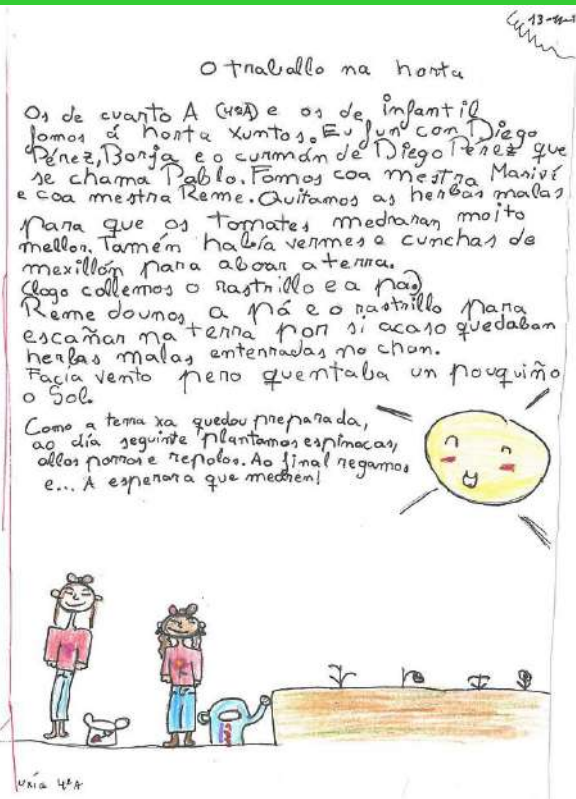 O traballo na horta
Os de cuarto A (4ºA) e os de infantil
fomos á horta xuntos. Eu fun con Diego
Pérez, Borja e o curmán de Diego Pérez que
se chama Pablo. Fomos coa mestra Mariví
e coa mestra Reme. Quitamos as herbas malas
para que os tomates medraran moito
mellor. Tamén había vermes e cunchas de
mexillón para aboar a terra.
Logo collemos o rastrillo e a pa.
Reme dounos a pá e o rastrillo para
escañar na terra por si acaso quedaban
herbas malas enterradas no chan.
Facía vento pero quentaba un pouquiño
o Sol.
Como a terra xa quedou preparada,
ao día seguinte plantamos espinacas,
allos porros e repolos. Ao final regamos
e... A esperar a que medren!
Uxía 4ºA